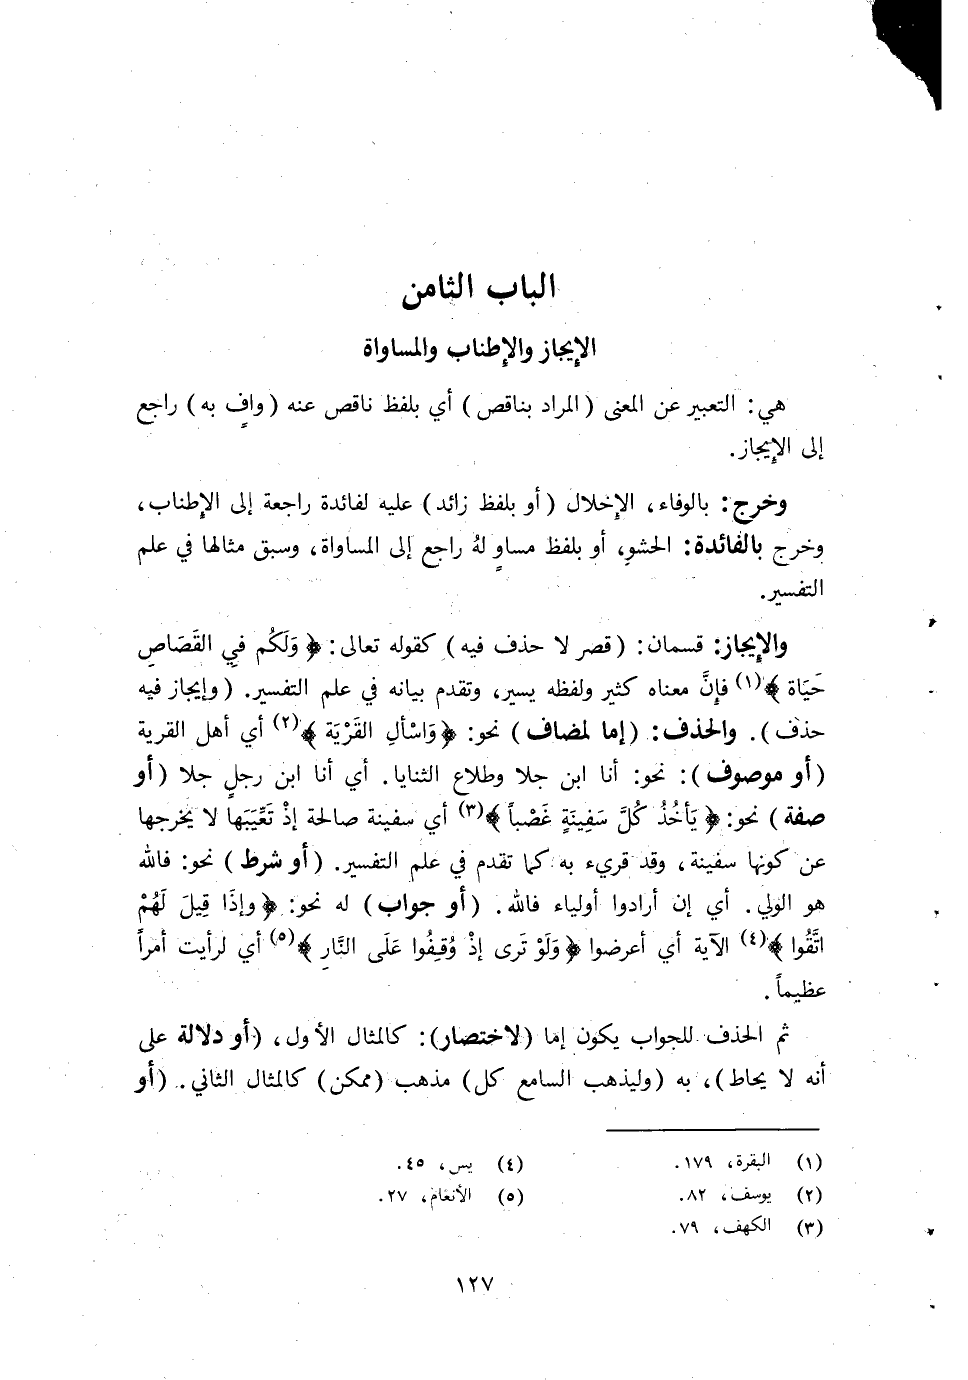 الباب الثامن
الإيجاز والإطناب والمساواة
هي: التعبير عن المعنى (المراد بناقص) أي بلفظ ناقص عنه (وافٍ به) راجع
إلى الإيجاز.
وخرج: بالوفاء، الإخلال (أو بلفظ زائد) عليه لفائدة راجعة إلى الإطناب،
وخرج بالفائدة: الحشوِ، أو بلفظ مساوٍ لهُ راجع إلى المساواة، وسبق مثالها في علم
التفسير.
والإيجاز: قسمان: (قصر لا حذف فيه) كقوله تعالى: ﴿ وَلَكُم فيِ القَصَاصِ
حَيَاة ﴾(١) فإنَّ معناه كثير ولفظه يسير، وتقدم بيانه في علم التفسير. (وإيجاز فيه
حذف). والحذف: (إما لمضاف) نحو: ﴿وَاسْألِ القَرْيَة ﴾(٢) أي أهل القرية
(أو موصوف): نحو: أنا ابن جلا وطلاع الثنايا. أي أنا ابن رجلٍ جلا (أو
صفة) نحو: ﴿ يَأخُذُ كُلَّ سَفِينَةٍ غَصْباً ﴾(٣) أي سفينة صالحة إذْ تَعَّيَبَها لا يخرجها
عن كونها سفينة، وقد قريء به كما تقدم في علم التفسير. (أو شرط) نحو: فالله
هو الولي. أي إن أرادوا أولياء فالله. (أو جواب) له نحو: ﴿ وإذَا قِيلَ لَهُمْ
اتَّقُوا ﴾(٤) الآية أي أعرضوا ﴿ وَلَوْ تَرى إذْ وُقِفُوا عَلَى النَّارِ ﴾(٥) أي لرأيت أمراً
عظيماً.
ثم الحذف للجواب يكون إما (لاختصار): كالمثال الأول، (أو دلالة على
أنه لا يحاط)، به (وليذهب السامع كل) مذهب (ممكن) كالمثال الثاني. (أو
(١) البقرة، ١٧٩.
(٢) يوسف، ٨٢.
(٣) الكهف، ٧٩.
(٤) يس، ٤٥.
(٥) الأنعام، ٢٧.
١٢٧